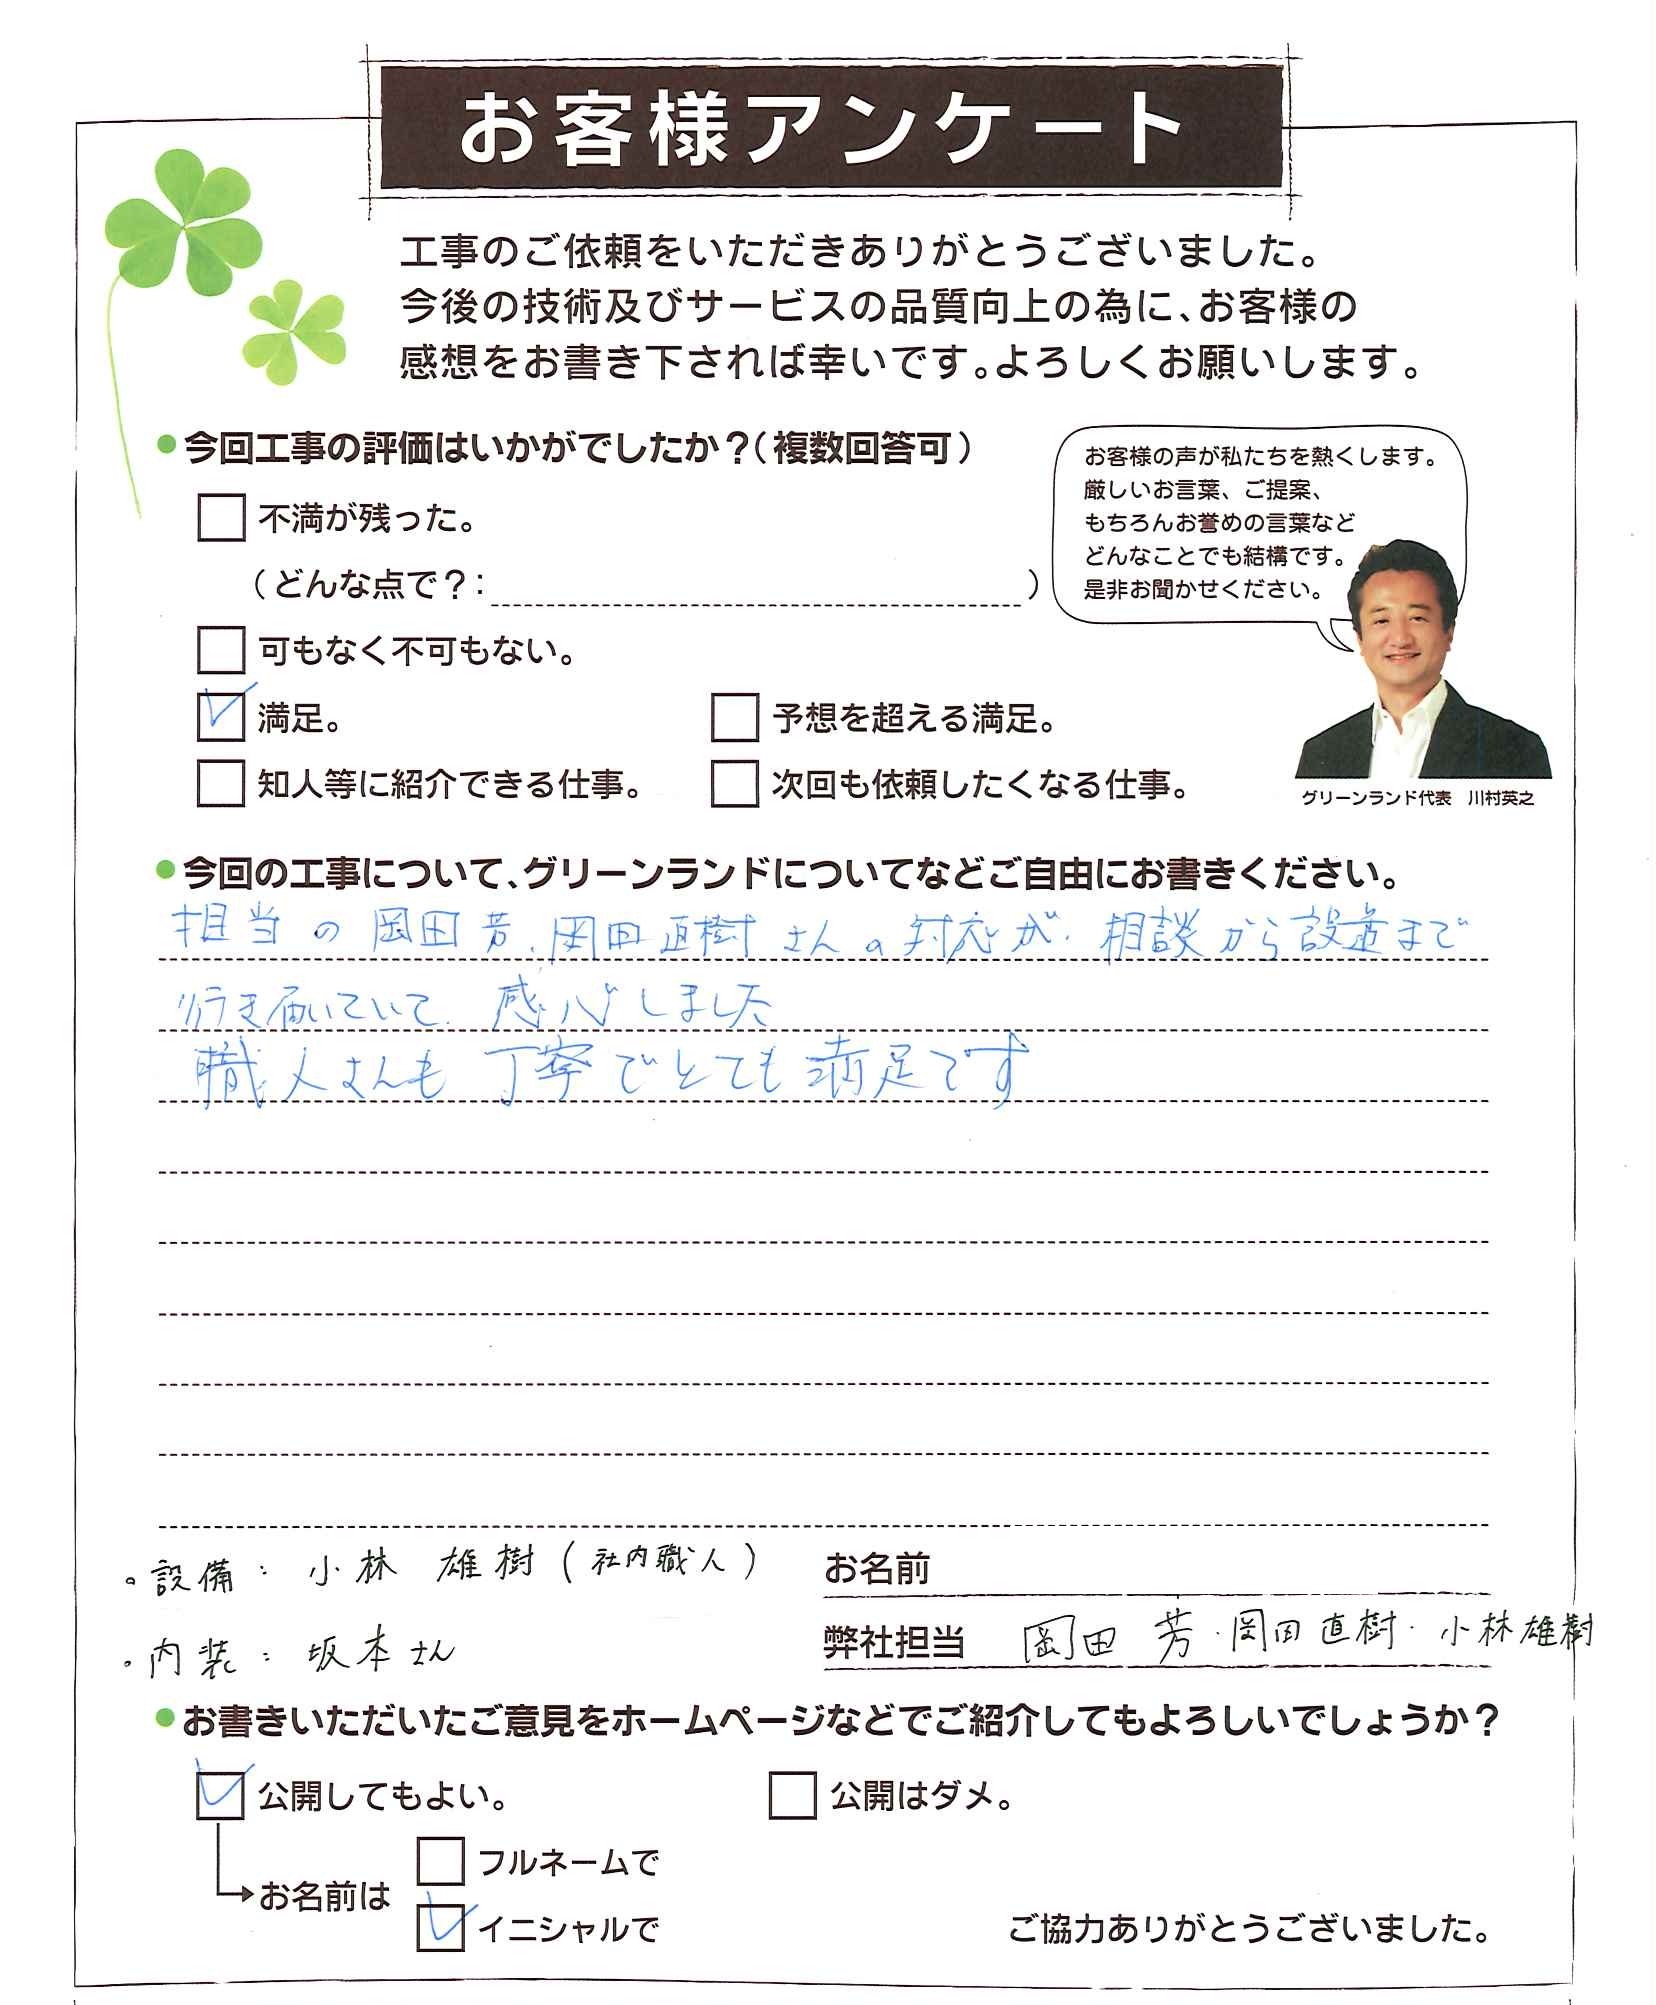 お客様アンケート
工事のご依頼をいただきありがとうございました。
今後の技術及びサービスの品質向上の為に、お客様の
感想をお書き下されば幸いです。よろしくお願いします。
●今回工事の評価はいかがでしたか？(複数回答可)
不満が残った。
(どんな点で？: )
可もなく不可もない。
満足。
予想を超える満足。
知人等に紹介できる仕事。
次回も依頼したくなる仕事。
お客様の声が私たちを熱くします。
厳しいお言葉、ご提案、
もちろんお誉めの言葉など
どんなことでも結構です。
是非お聞かせください。
グリーンランド代表 川村英之
●今回の工事について、グリーンランドについてなどご自由にお書きください。
担当の岡田芳、岡田直樹さんの対応が、相談から設置まで
行き届いていて、感心しました
職人さんも丁寧でとても満足です
・設備：小林 雄樹(社内職人)
・内装：坂本さん
お名前
弊社担当 岡田 芳・岡田直樹・小林雄樹
●お書きいただいたご意見をホームページなどでご紹介してもよろしいでしょうか？
公開してもよい。
公開はダメ。
お名前は
フルネームで
イニシャルで
ご協力ありがとうございました。